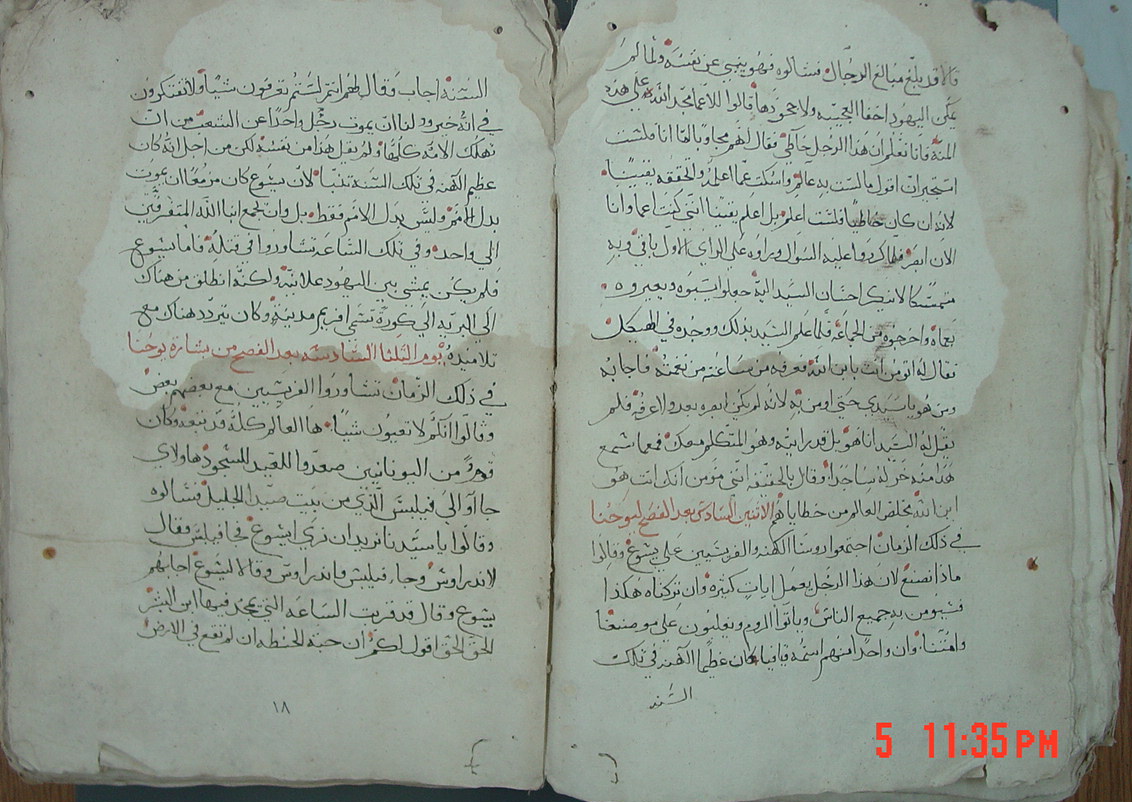 قالا قد بلغ مبالغ الرجال فسالوه فهو يجيب عن نفسه ولما لم
يمكن اليهود اخفا العجيبه ولا جحودها قالوا للاعما مجد الله على هذه
المنة فانا نعلم ان هذا الرجل خاطي فقال لهم مجاوبا لقا انا فلست
استخير ان اقول ما لست به عالم واسكت عما اعلمه والحققه يقيناً
لانه ان كان خاطياً فلست اعلم بل اعلم يقينا انني كنت اعما وانا
الان ابصر فلما كرروا عليه السوال وراوه على الراي الاول باقي وبه
متمسكا لا ينكر احسان السيد اليه جعلوا يسبوه ويعيروه
بعماه واخرجوه من الجماعه فلما علم السيد بذلك ووجده في الهيكل
فقال له اتومن انت بابن الله فعرفه من ساعته من نغمته فاجابه
ومن هو يا سيدي حتى اومن به لانه لم يكن ابصره بعد ولا عرفه فلم
يقل له السيد انا هو بل قد رايته وهو المتكلم معك فعما سمع
هذا منه خر له ساجداً وقال بالحقيقه انني مومن انك انت هو
ابن الله مخلص العالم من خطاياهم الاثنين السادس بعد الفصح ليوحنا
في ذلك الزمان اجتمعوا روسا الكهنه والفريسيين على يسوع وقالوا
ماذا نصنع لان هذا الرجل يعمل ايات كثيره وان تركناه هكذا
فسيومن به جميع الناس وياتوا الروم ويغلبون على موضعنا
وامتنا وان واحداً منهم اسمه قيافا كان عظيم الكهنه في تلك
السنه
السنه اجاب وقال لهم انتم لستم تعرفون شيأ ولا تفتكرون
في انه خير لنا ان يموت رجل واحداً عن الشعب من ان
تهلك الامه كلها ولم يقل هذا من نفسه لكن من اجل انه كان
عظيم الكهنه في تلك السنه تنبا لان يسوع كان مزمعاً ان يموت
بدل الامم وليس بدل الامم فقط بل وان يجمع ابنا الله المتفرقين
الي واحد وفي تلك الساعه تشاوروا في قتله فاما يسوع
فلم يكن يمشي بين اليهود علانيه ولكنه انطلق من هناك
الى البريه الي كورة تسمى افريم مدينة وكان يتردد هناك مع
تلاميذه يوم الثلثا السادسه بعد الفصح من بشارة يوحنا
في ذلك الزمان تشاوروا الفريسيين مع بعضهم بعض
وقالوا انكم لا تعيون شيئاً ها العالم كله قد تبعه وكان
قوم من اليونانيين صعدوا للعيد للسجود هاولاي
جااوا الى فيلبس الذي من بيت صيدا الجليل فسالوه
وقالوا يا سيدنا نريد ان نري ايسوع فجا فيلبس وقال
لاندراوس وجا فيلبس واندراوس وقالا ليسوع اجابهم
يسوع وقال قد قربت الساعه التي يمجد فيها ابن البشر
الحق الحق اقول لكم ان حبة الحنطه ان لم تقع في الارض
١٨
5 11:35 PM